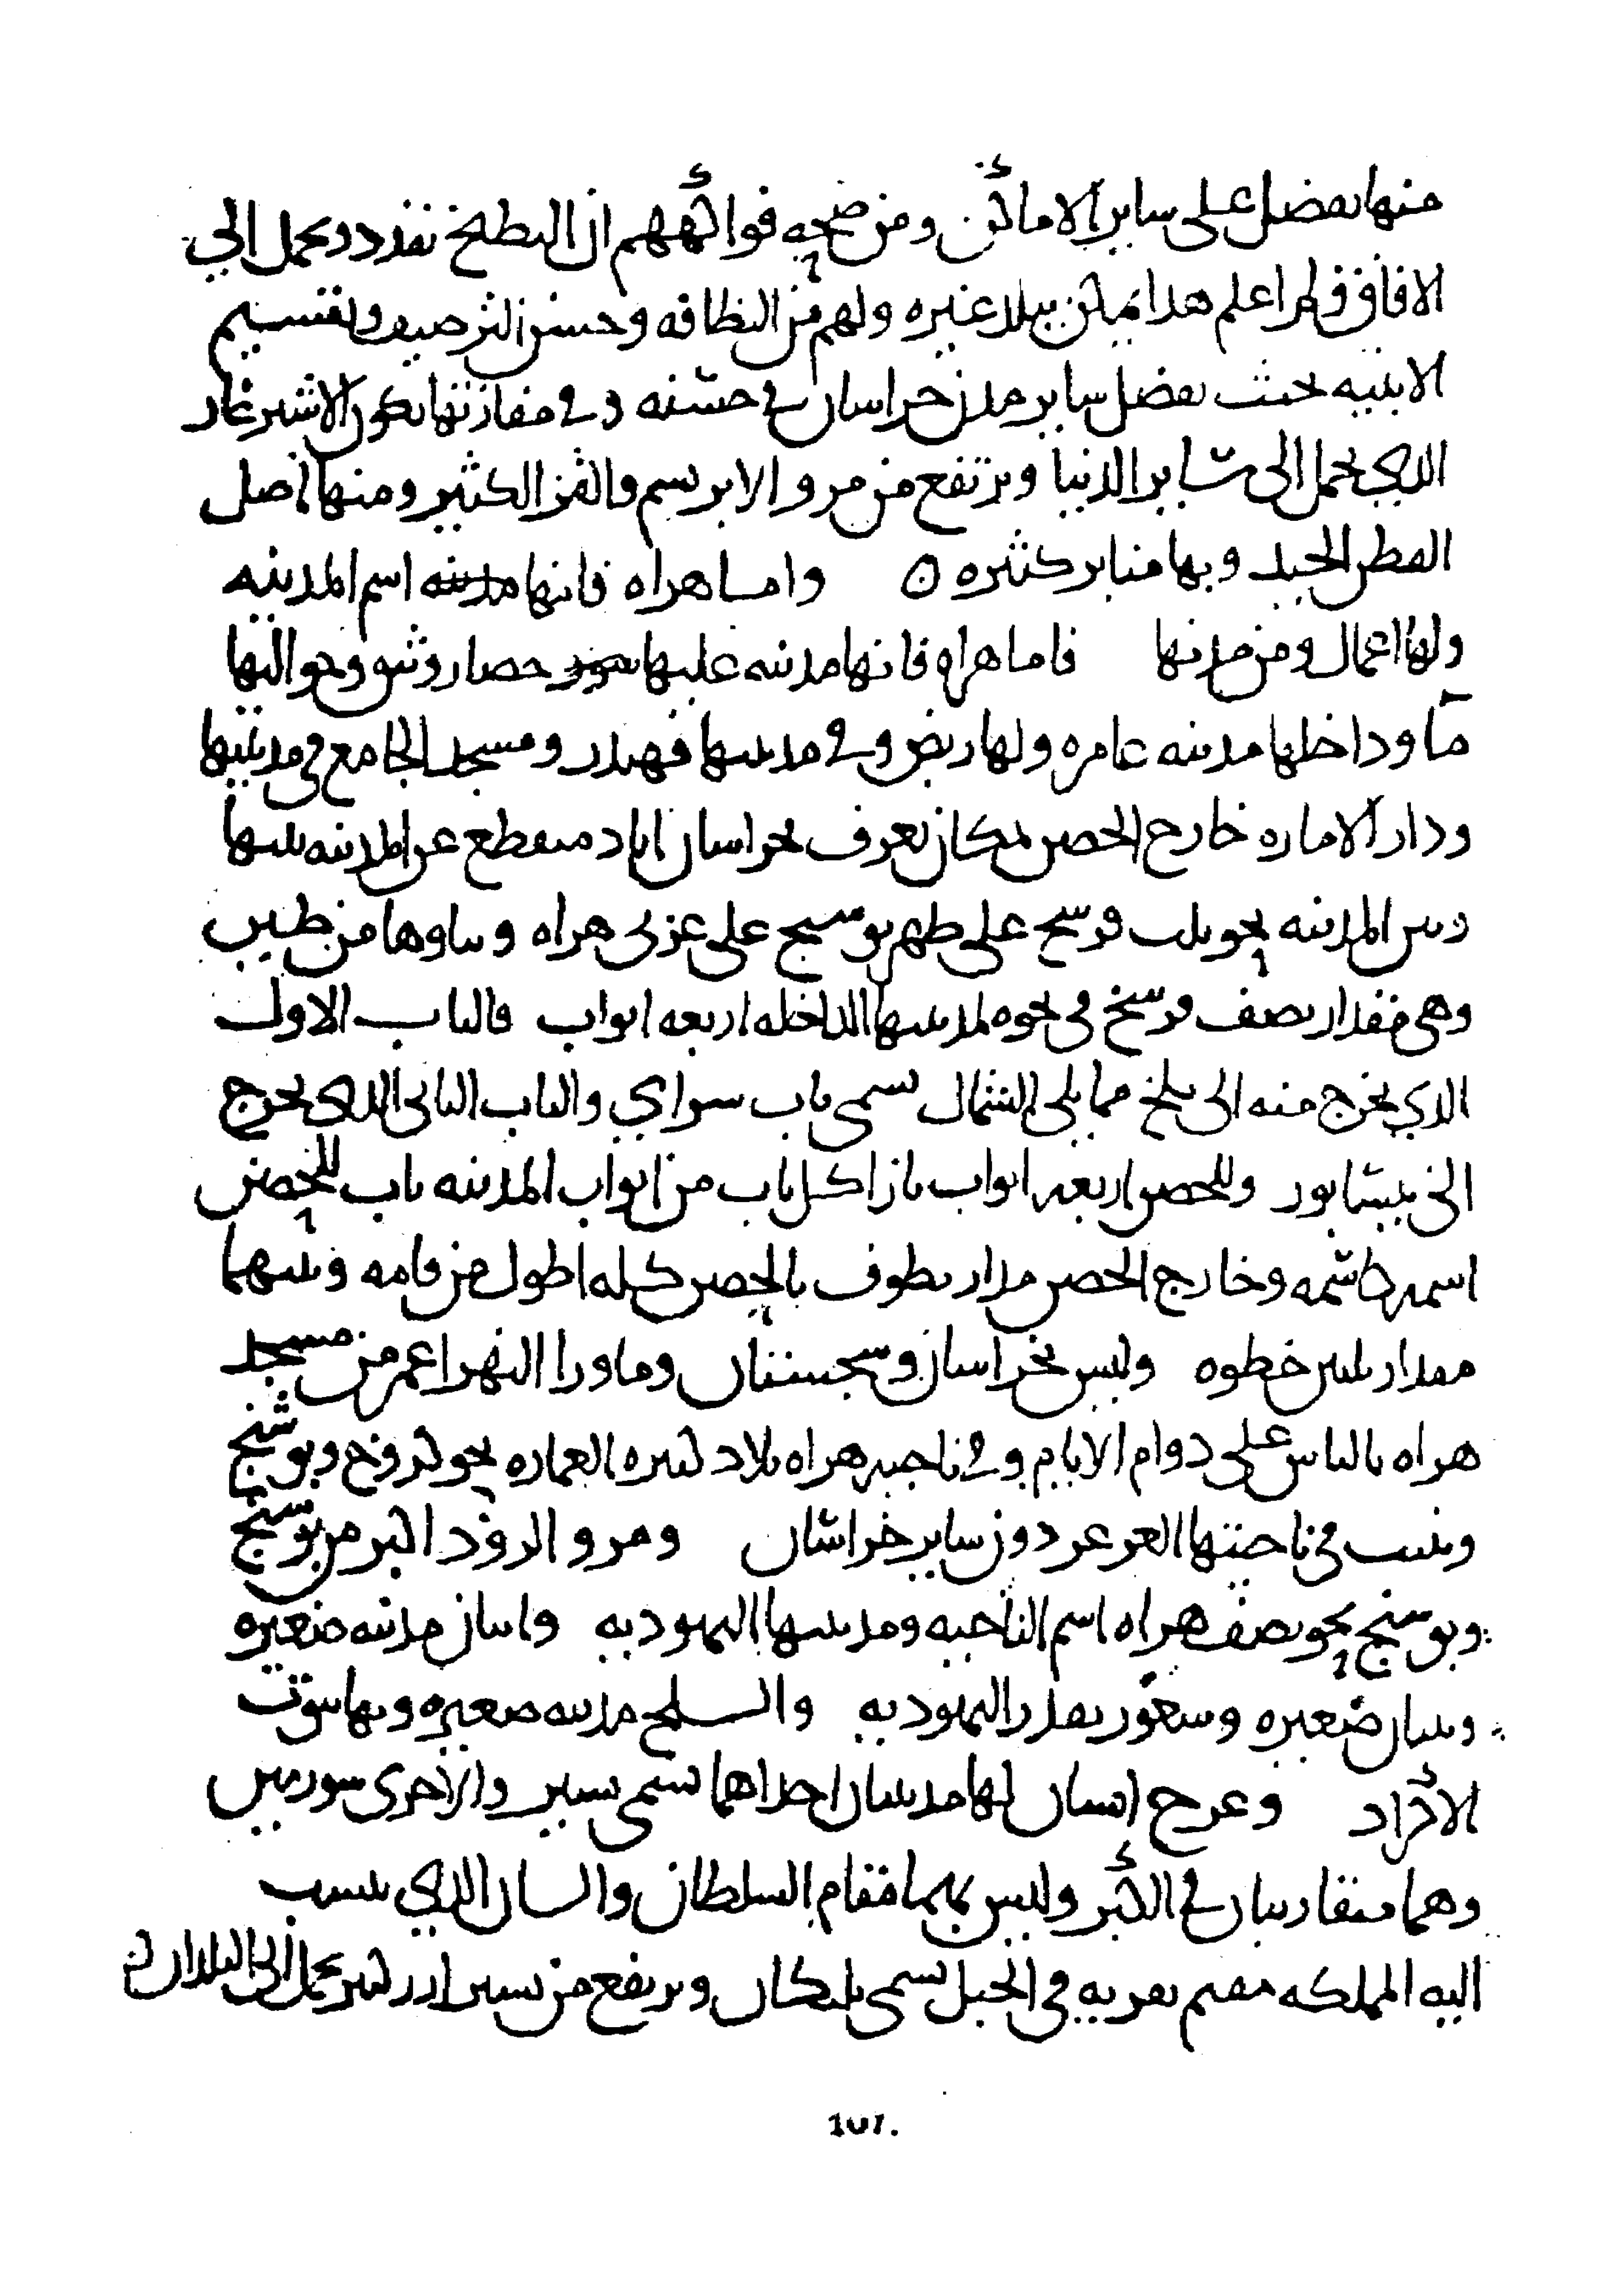 منها يفضل على ساير الاماكن ومن صحه فواكههم ان البطيخ يقدد ويحمل الي
الافاق ولم اعلم هذا يمكن ببلد غيره ولهم من النظافه وحسن الترصيف وتقسيم
الابنيه بحيث يفضل ساير مدن خراسان في حسنه وفي مفازتها يكون الاشترغار
الذي يحمل الى ساير الدنيا ويرتفع من مرو الابريسم والقز الكثير ومنها اصل
القطن الجيد وبها منابر كثيره ن واما هراه فانها مدينه اسم المدينه
ولها اعمال ومن مدنها فاما هراه فانها مدينه عليها سور حصار وثيق وحواليها
ما وداخلها مدينه عامره ولها ربض وفي مدينتها قهندز ومسجد الجامع في مدينتها
ودار الاماره خارج الحصن بمكان يعرف بخراسان اباد منقطع عن المدينه بينها
وبين المدينه نحو ثلث فرسخ على طهر بوسنج على غربي هراه وبناوها من طين
وهي مقدار نصف فرسخ في نحوه لمدينتها الداخله اربعه ابواب فالباب الاول
الذي يخرج منه الى بلخ مما يلي الشمال يسمى باب سراي والباب الثاني الذي يخرج
الى نيسابور وللحصن اربعه ابواب بازا كل باب من ابواب المدينه باب للحصن
اسمه كاسمه وخارج الحصن مدار يطوف بالحصن كله اطول من قامه وبينهما
مقدار ثلثين خطوه وليس بخراسان وسجستان وماورا النهر اعمر من مسجد
هراه بالناس على دوام الايام وفي ناحيه هراه بلاد كثيره العماره نحو كروخ وبوشنج
وينبت في ناحيتها العرعر دون ساير خراسان ومرو الروذ اكبر من بوسنج
وبوسنج نحو نصف هراه اسم الناحيه ومدينتها اليهوديه وانبار مدينه صغيره
صغيره بقدر اليهوديه مدينه صغيره وبها بيوت
الاكراد وغرج لها مدينتان احداهما تسمى بشير والاخرى سورمين
وهما متقاربتان في الكبر وليس بهما مقام السلطان والسار الذي ينسب
اليه المملكه مقيم بقريه في الجبل تسمى بليكان ويرتفع من بشير ارز كثير يحمل الى البلدان
107.